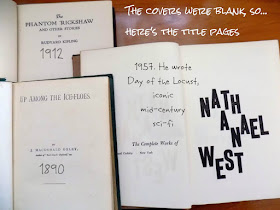 The covers were blank, so...
here's the title pages
THE
PHANTOM 'RICKSHAW
AND OTHER STORIES
BY
RUDYARD KIPLING
1912
UP AMONG THE ICE-FLOES.
BY
J. MACDONALD OXLEY
1890
1957. He wrote
Day of the Locust,
iconic
mid-century
sci-fi
The Complete Works of
New York
NATH
ANAEL
WEST